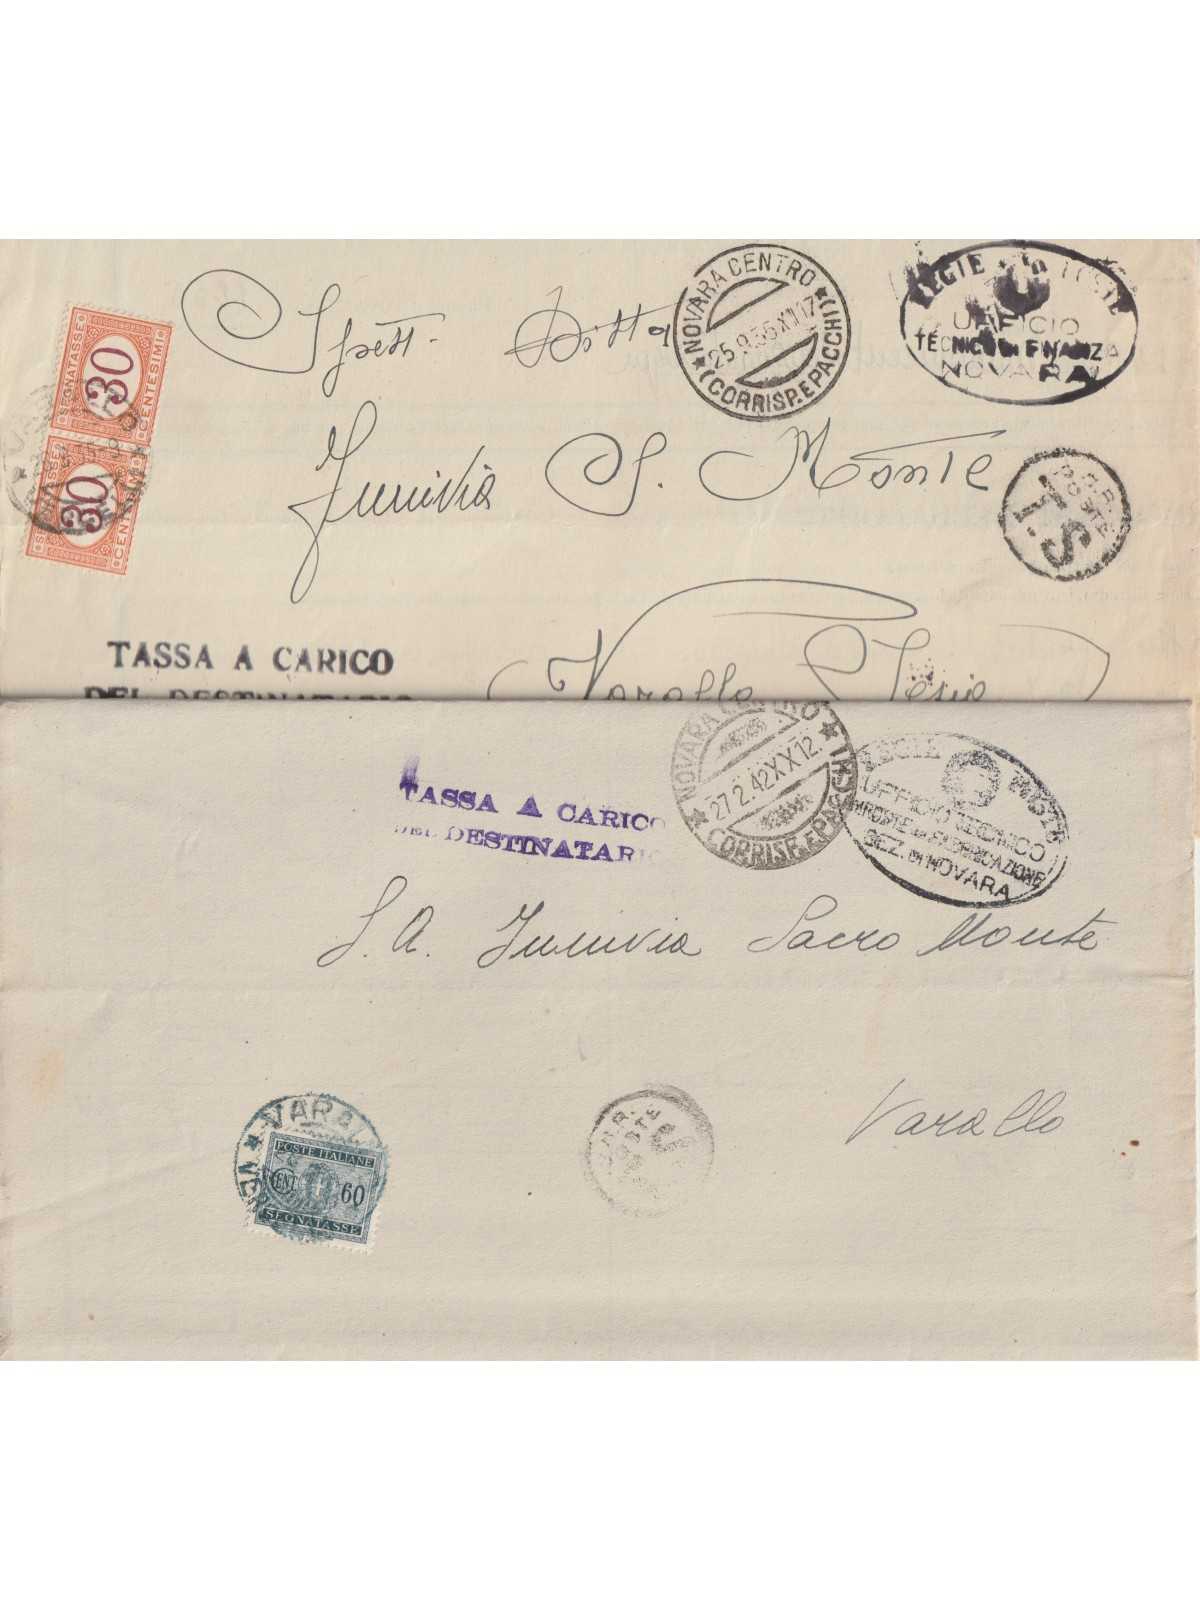 Spett. Ditta
Funivia S. Monte
Varallo Sesia
NOVARA CENTRO
25.9.35.XIII 17
(CORRISP. E PACCHI)
REGIE POSTE
UFFICIO
TECNICO DI FINANZA
NOVARA
R.R.
POSTE
T.S
SEGNATASSE
30
CENTESIMI
SEGNATASSE
30
CENTESIMI
TASSA A CARICO
DEL DESTINATARIO
TASSA A CARICO
DEL DESTINATARIO
NOVARA CENTRO
27.2.42 XX 12.
CORRISP. E PACCHI
REGIE POSTE
UFFICIO TECNICO
IMPOSTE DI FABBRICAZIONE
SEZ. DI NOVARA
S. A. Funivia Sacro Monte
Varallo
VARAL
POSTE ITALIANE
CENT. 60
SEGNATASSE
POSTE